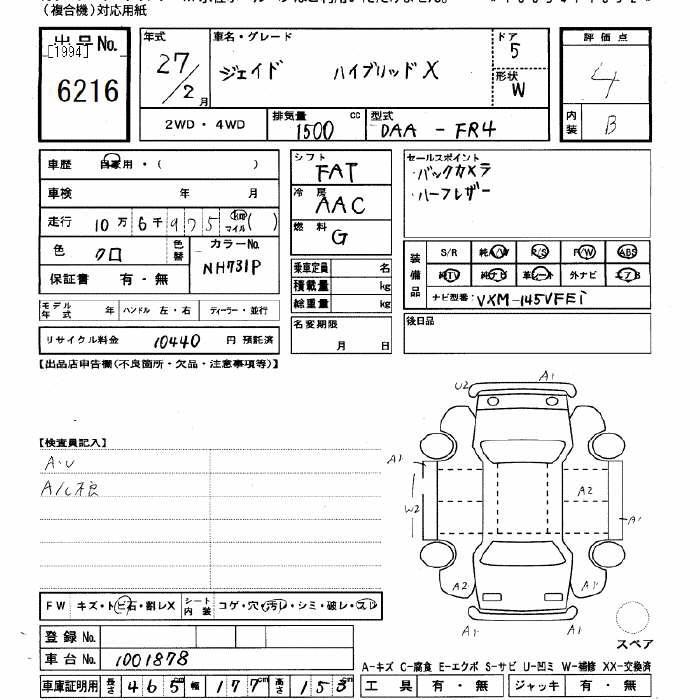 (複合機)対応用紙
出品No.
[1994]
6216
年式
27/2月
車名・グレード
ジェイド ハイブリッドX
ドア
5
形状
W
評価点
4
内装
B
2WD・4WD
排気量
1500 cc
型式
DAA - FR4
車歴 自家用・( )
車検 年 月
走行 10万6千975 km マイル( )
色 クロ
色替
カラーNo.
NH731P
保証書 有・無
モデル年式 年
ハンドル 左・右
ディーラー・並行
リサイクル料金 10440 円 預託済
シフト
FAT
冷房
AAC
燃料
G
乗車定員 名
積載量 kg
総重量 kg
名変期限
月 日
セールスポイント
・バックカメラ
・ハーフレザー
装備品
S/R 純A/W P/S P/W ABS
純TV 純ナビ 革シート 外ナビ エアB
ナビ型番: VXM-145VFEi
後日品
【出品店申告欄(不良箇所・欠品・注意事項等)】
【検査員記入】
A・U
A/C不良
U2
A1
A1
W2
A2
A1
A2
A1
A1
スペア
FW キズ・トビ石・割レX
シート内装 コゲ・穴・汚レ・シミ・破レ・スレ
登録No.
車台No. 1001878
車庫証明用 長さ 465cm 幅 177cm 高さ 153cm
A-キズ C-腐食 E-エクボ S-サビ U-凹ミ W-補修 XX-交換済
工具 有・無 ジャッキ 有・無